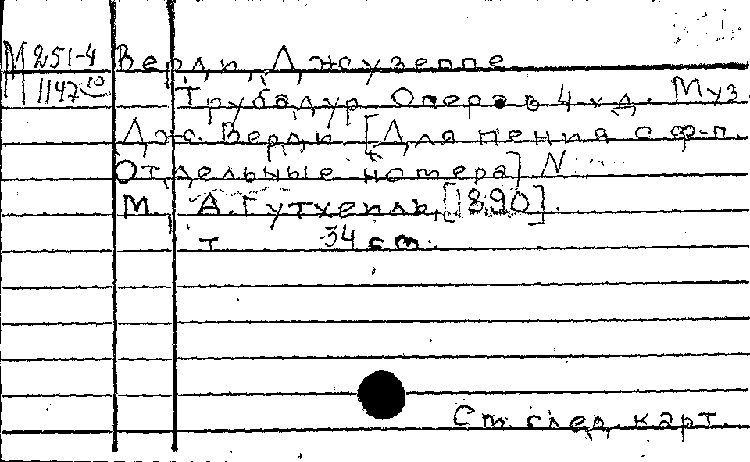 М 251-4 Верди, Джузеппе
1147 10 Трубадур. Опера в 4-х д. Муз.
Дж. Верди. [Для пения с ф-п.
Отдельные номера] N
М., А. Гутхейль, [1890].
т 34 cm.
См. след. карт.